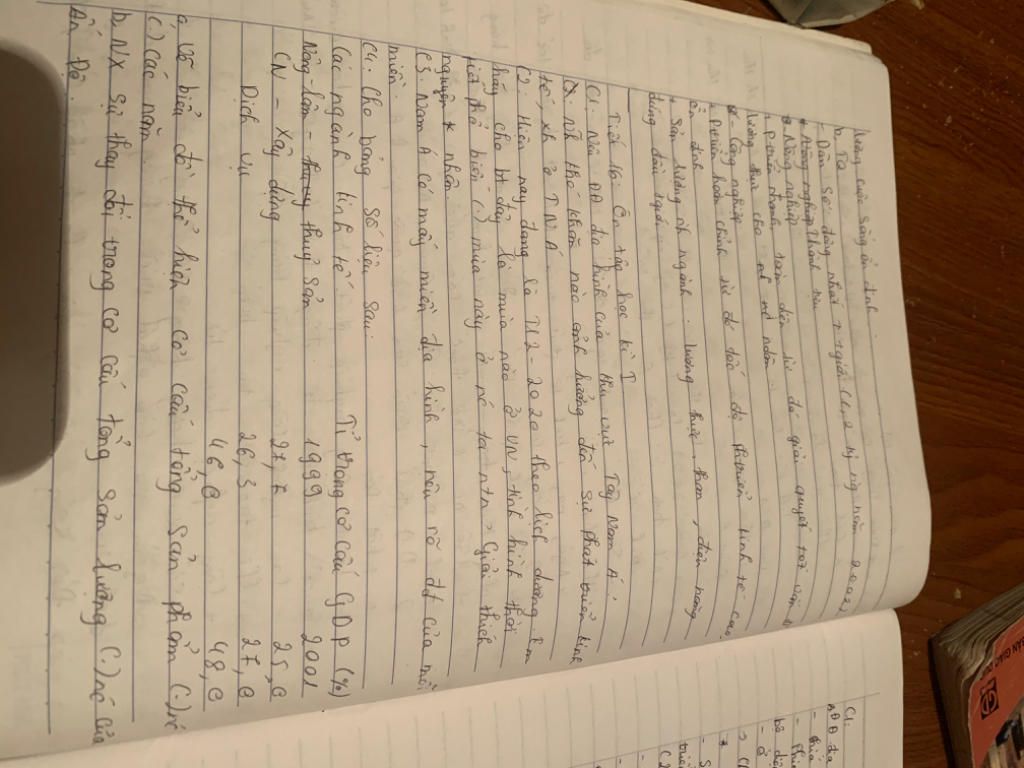 lương cuộc sống ổn định.
b. TQ
- Dân số: đông nhất t.giới (1,2 tỷ ng năm 2002)
* Nông nghiệp Thành tựu
* Nông nghiệp
- P.triển nhanh toàn diện từ đó giải quyết tốt vấn đề
lương thực cho
* Công nghiệp
- P.triển hoàn chỉnh từ đó tốc độ P.triển kinh tế cao
ổn định
* Sản lượng nh ngành: lương thực, than, điện năng
đứng đầu tgới
Tiết 16: Ôn tập học kì I
C1: Nêu ĐĐ địa hình của khu vực Tây Nam Á.
nh khó khăn nào ảnh hưởng đến sự phát triển kinh
tế, xh ở TNÁ.
C2: Hiện nay đang là T12-2020 theo lịch dương E m
hãy cho bt đây là mùa nào ở VN, tình hình thời
tiết phổ biến (.) mùa này ở nc ta ntn? Giải thích
nguyên nhân.
C3: Nam Á có mấy miền địa hình, nêu rõ đđ của mỗi
miền.
C4: Cho bảng số liệu sau:
Các ngành kinh tế Tỉ trọng cơ cấu GDP (%)
1999 2001
Nông - lâm - thuỷ sản 27,7 25,0
CN - xây dựng 26,3 27,0
Dịch vụ 46,0 48,0
a, Vẽ biểu đồ thể hiện cơ cấu tổng sản phẩm (.) nc
(.) các năm
b. N/X sự thay đổi trong cơ cấu tổng sản lượng (.) nc của
Ấn Độ.
C1:
ĐĐ địa